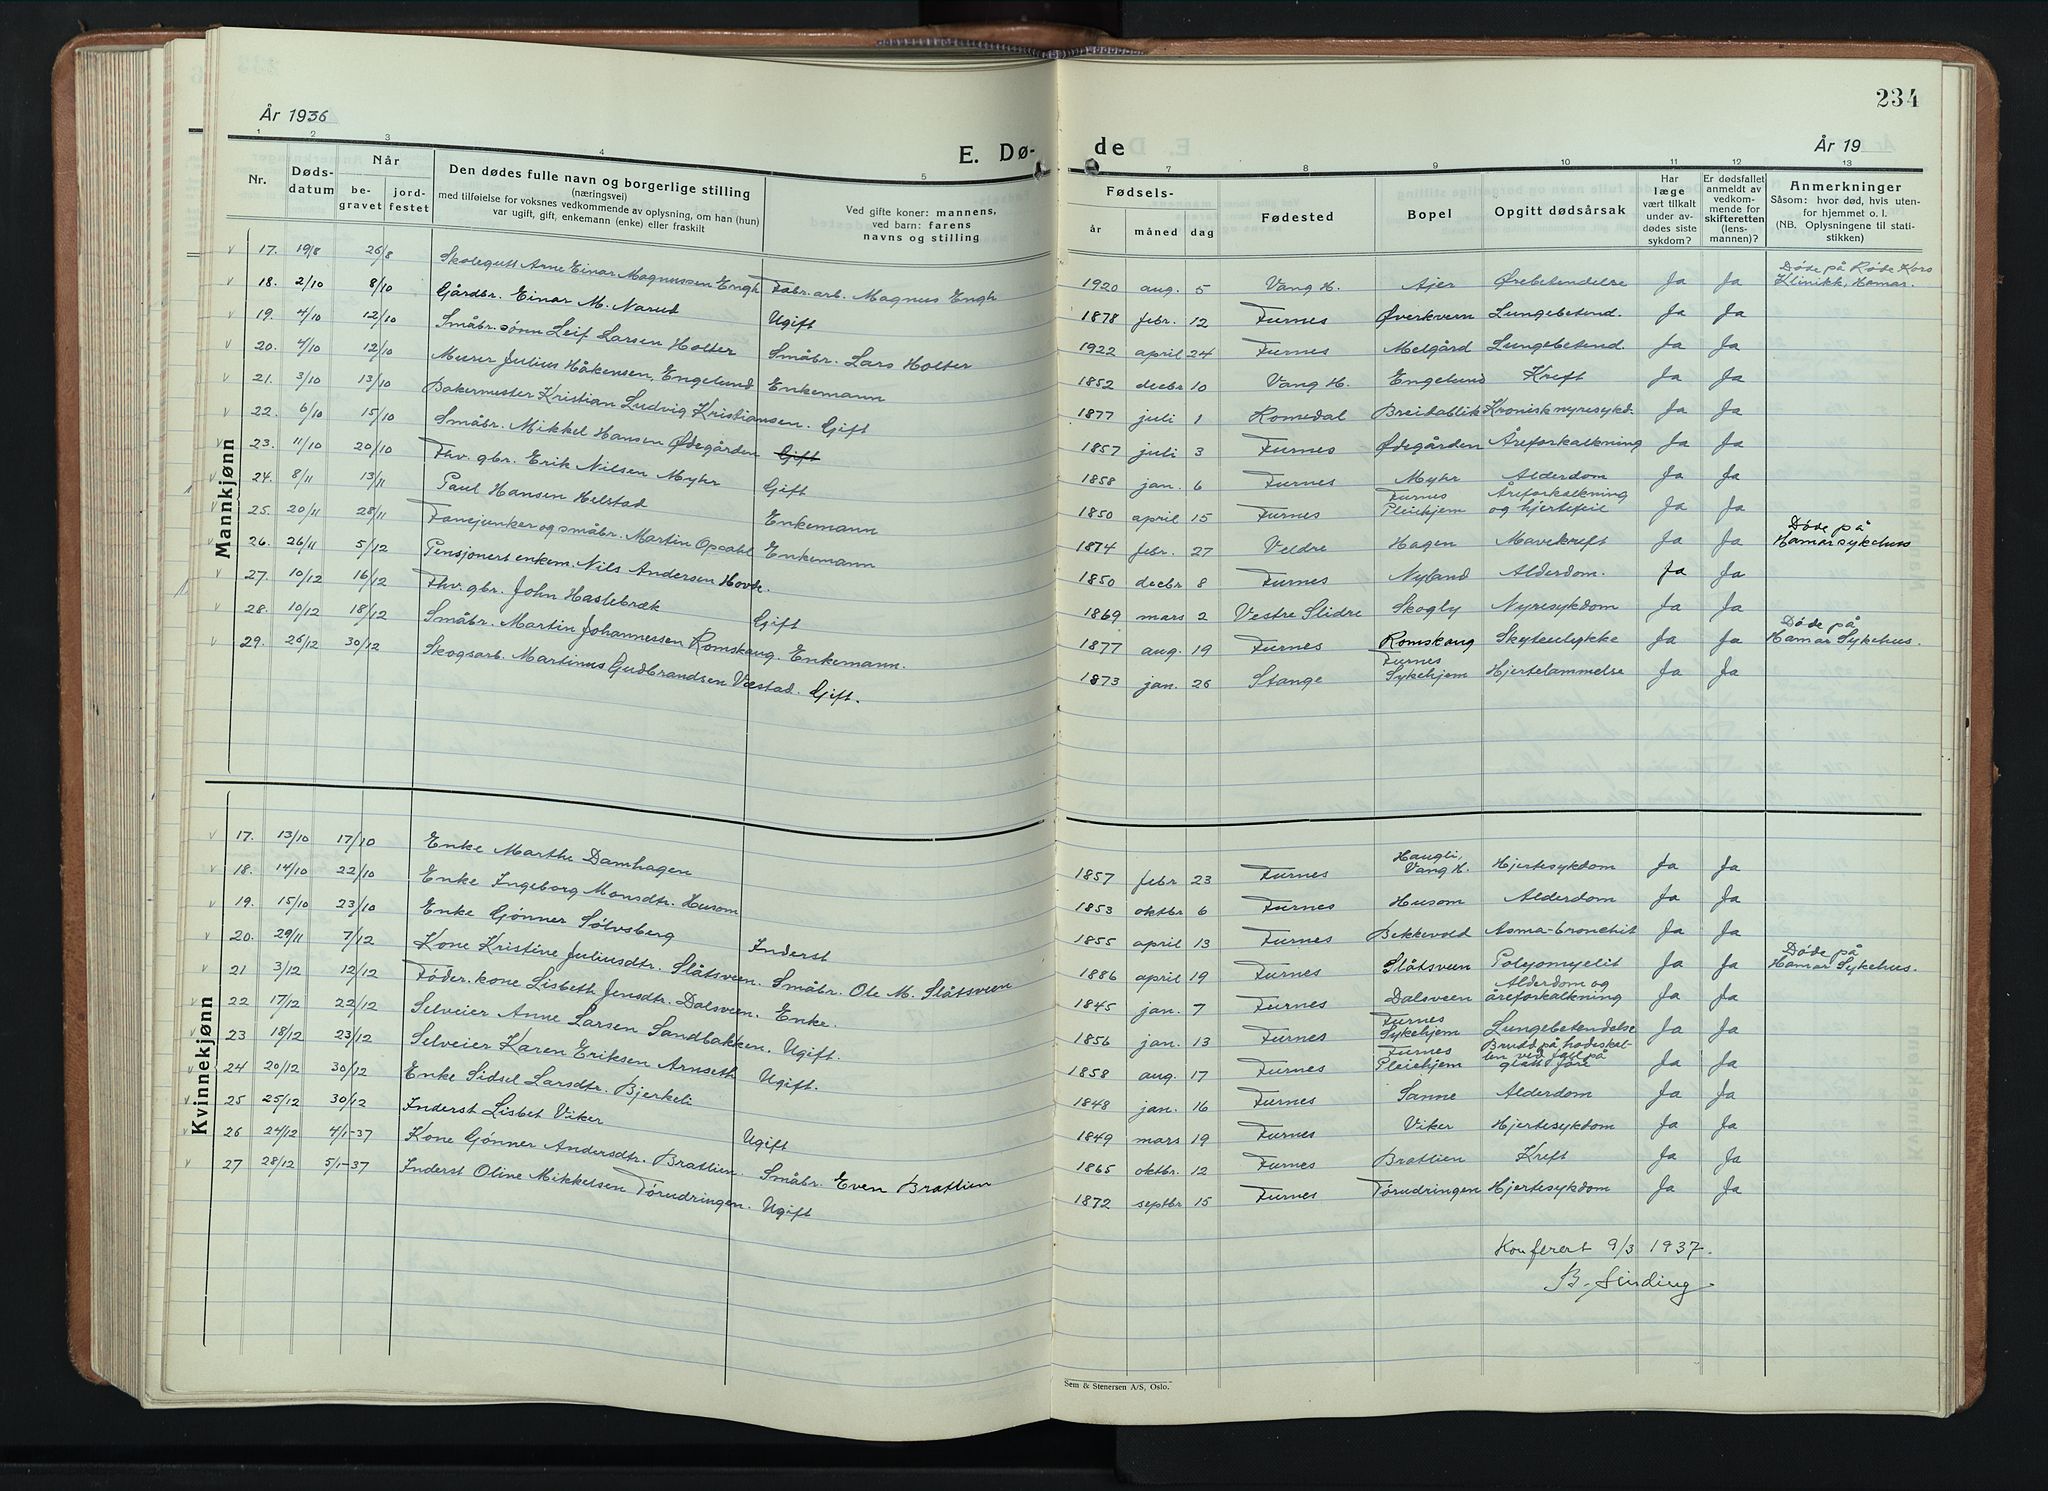 234
År 1936
År 19
E. Dø-
de
1 2 3 4 5
7 8 9 10 11 12 13
Nr.
Døds-
datum
Når
be-
gravet
jord-
festet
Den dødes fulle navn og borgerlige stilling
(næringsvei)
med tilføielse for voksnes vedkommende av oplysning, om han (hun)
var ugift, gift, enkemann (enke) eller fraskilt
Ved gifte koner: mannens,
ved barn: farens
navns og stilling
Fødsels-
år måned dag
Fødested
Bopel
Opgitt dødsårsak
Har
læge
vært tilkalt
under av-
dødes siste
sykdom?
Er dødsfallet
anmeldt av
vedkom-
mende for
skifteretten
(lens-
mannen)?
Anmerkninger
Såsom: hvor død, hvis uten-
for hjemmet o. l.
(NB. Oplysningene til stati-
stikken)
Mannkjønn
v 17. 19/8 26/8 Skolegutt Arne Einar Magnussen Engh Fabr.arb. Magnus Engh 1920 aug. 5 Vang H. Ajer Ørebetendelse Ja Ja Døde på Røde Kors
Klinikk, Hamar.
v 18. 2/10 8/10 Gårdbr. Einar M. Narud Ugift 1878 febr. 12 Furnes Øverkvern Lungebetend. Ja Ja
v 19. 4/10 12/10 Småbr. sønn Leif Larsen Holter Småbr. Lars Holter 1922 april 24 Furnes Melgård Lungebetend. Ja Ja
v 20. 4/10 12/10 Murer Julius Håkensen, Engelund Enkemann 1852 decbr 10 Vang H. Engelund Kreft Ja Ja
v 21. 3/10 13/10 Bakermester Kristian Ludvig Kristiansen. Gift 1877 juli 1 Romedal Breidablik Kronisk nyresykd. Ja Ja
v 22. 6/10 15/10 Småbr. Mikkel Hansen Ødegården Gift 1857 juli 3 Furnes Ødegården Åreforkalkning Ja Ja
v 23. 11/10 20/10 Fhv. gbr. Erik Nilsen Myhr Gift 1858 jan. 6 Furnes Myhr Alderdom Ja Ja
v 24. 8/11 13/11 Paul Hansen Helstad Enkemann 1850 april 15 Furnes Furnes
Pleiehjem Åreforkalkning
og hjertefeil Ja Ja
v 25. 20/11 28/11 Fanejunker og småbr. Martin Opdahl Enkemann 1874 febr. 27 Veldre Hagen Mavekreft Ja Ja Døde på
Hamar sykehus
v 26. 26/11 5/12 Pensjonert enkem. Nils Andersen Hovde. 1850 decbr 8 Furnes Nyland Alderdom. Ja Ja
v 27. 10/12 16/12 Fhv. gbr. John Haslebræk Gift 1869 mars 2 Vestre Slidre Skogly Nyresykdom Ja Ja
v 28. 10/12 18/12 Småbr. Martin Johannessen Romskaug. Enkemann. 1877 aug. 19 Furnes Romskaug Skyteulykke Ja Ja Døde på
Hamar Sykehus.
v 29. 26/12 30/12 Skogsarb. Martinus Gudbrandsen Væstad. Gift. 1873 jan. 26 Stange Furnes
Sykehjem Hjertelammelse Ja Ja
Kvinnekjønn
v 17. 13/10 17/10 Enke Marthe Damhagen 1857 febr 23 Furnes Haugli,
Vang H. Hjertesykdom Ja Ja
v 18. 14/10 22/10 Enke Ingeborg Monsdtr. Husom 1853 oktbr 6 Furnes Husom Alderdom Ja Ja
v 19. 15/10 23/10 Enke Gønner Sølvsberg Inderst 1855 april 13 Furnes Bekkevold Asma-bronchit Ja Ja
v 20. 29/11 7/12 Kone Kristine Juliusdtr. Slåtsveen. Småbr. Ole M. Slåtsveen 1886 april 19 Furnes Slåtsveen Polyomyelit Ja Ja Døde på
Hamar Sykehus.
v 21 3/12 12/12 Føder.kone Lisbeth Jensdtr. Dalsveen. Enke. 1845 jan. 7 Furnes Dalsveen Alderdom og
åreforkalkning Ja Ja
v 22 17/12 22/12 Selveier Anne Larsen Sandbakken. Ugift. 1856 jan. 13 Furnes Furnes
Sykehjem Lungebetendelse Ja Ja
v 23 18/12 23/12 Selveier Karen Eriksen Arnseth Ugift. 1858 aug. 17 Furnes Furnes
Pleiehjem Brudd på hodeskal-
len ved fall på
glatt føre Ja Ja
v 24 20/12 30/12 Enke Sidsel Larsdtr. Bjerkeli 1848 jan. 16 Furnes Sanne Alderdom Ja Ja
v 25 25/12 30/12 Inderst Lisbet Viker Ugift 1849 mars 19 Furnes Viker Hjertesykdom Ja Ja
v 26 24/12 4/1-37 Kone Gønner Andersdtr. Bratlien. Småbr. Even Bratlien 1865 oktbr. 12 Furnes Bratlien Kreft Ja Ja
v 27 28/12 5/1-37 Inderst Oline Mikkelsen Tørudringen. Ugift 1872 septbr 15 Furnes Tørudringen Hjertesykdom Ja Ja
Konferert 9/3 1937.
B. Sinding.
Sem & Stenersen A/S, Oslo.